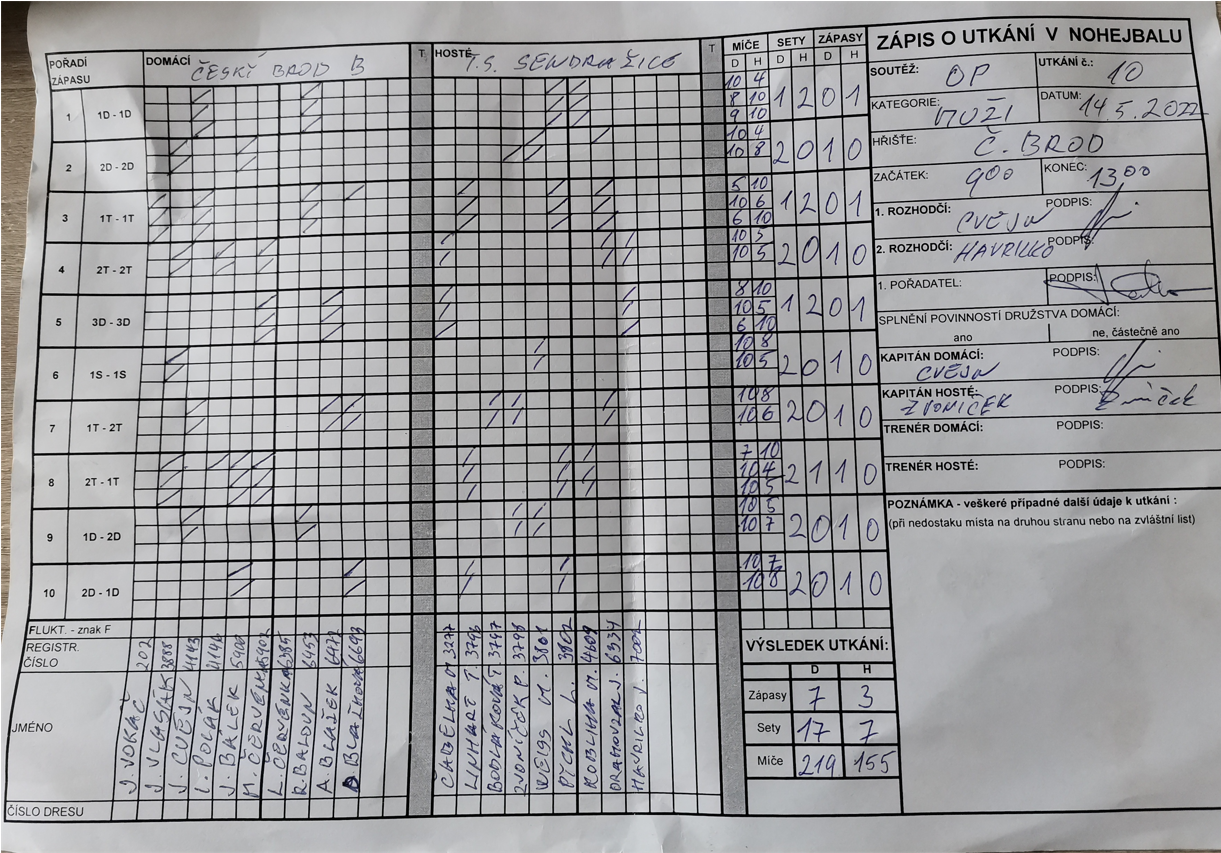 ZÁPIS O UTKÁNÍ V NOHEJBALU
POŘADÍ ZÁPASU
DOMÁCÍ ČESKÝ BROD B
T
HOSTÉ T.S. SENDRAŽICE
T
MÍČE SETY ZÁPASY
D H D H D H
SOUTĚŽ: OP
UTKÁNÍ č.: 10
KATEGORIE: MUŽI
DATUM: 14.5.2022
HŘIŠTĚ: Č. BROD
ZAČÁTEK: 900
KONEC: 1300
1. ROZHODČÍ: CVEJN
PODPIS:
2. ROZHODČÍ: HAVRILKO
PODPIS:
1. POŘADATEL:
PODPIS:
SPLNĚNÍ POVINNOSTÍ DRUŽSTVA DOMÁCÍ:
ano
ne, částečně ano
KAPITÁN DOMÁCÍ: CVEJN
PODPIS:
KAPITÁN HOSTÉ: ZVONÍČEK
PODPIS: Zvoníček
TRENÉR DOMÁCÍ:
PODPIS:
TRENÉR HOSTÉ:
PODPIS:
POZNÁMKA - veškeré případné další údaje k utkání :
(při nedostaku místa na druhou stranu nebo na zvláštní list)
1 1D - 1D
10 4
8 10
9 10
1 2 0 1
2 2D - 2D
10 4
10 8
2 0 1 0
3 1T - 1T
5 10
10 6
6 10
1 2 0 1
4 2T - 2T
10 5
10 5
2 0 1 0
5 3D - 3D
8 10
10 5
6 10
1 2 0 1
6 1S - 1S
10 8
10 5
2 0 1 0
7 1T - 2T
10 8
10 6
2 0 1 0
8 2T - 1T
7 10
10 4
10 5
2 1 1 0
9 1D - 2D
10 5
10 7
2 0 1 0
10 2D - 1D
10 7
10 8
2 0 1 0
FLUKT. - znak F
REGISTR. ČÍSLO
JMÉNO
J. VOKÁČ 202
J. VLSÁK 3888
J. CVEJN 4143
L. POLÁK 4144
J. BÁLEK 5400
M. ČERVENKA
L. ČERVENKA 6385
R. BALOUN 6453
A. BLAŽEK 6472
BLAŽKOVÁ 6693
CABELKA M. 3277
LINHART T. 3796
BODLÁKOVÁ T. 3797
ZVONÍČEK P. 3798
WEISS M. 3801
PÝCHL L. 3802
KOBLIHA M. 4609
DRAHOVZAL J. 6334
HAVRILKO J. 7002
ČÍSLO DRESU
VÝSLEDEK UTKÁNÍ:
D H
Zápasy 7 3
Sety 17 7
Míče 219 155